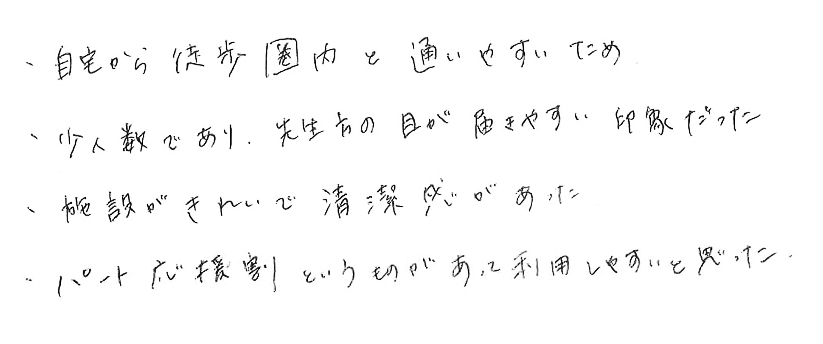 ・自宅から徒歩圏内と通いやすいため
・少人数であり、先生方の目が届きやすい印象だった
・施設がきれいで清潔感があった
・パート応援割というものがあって利用しやすいと思った.